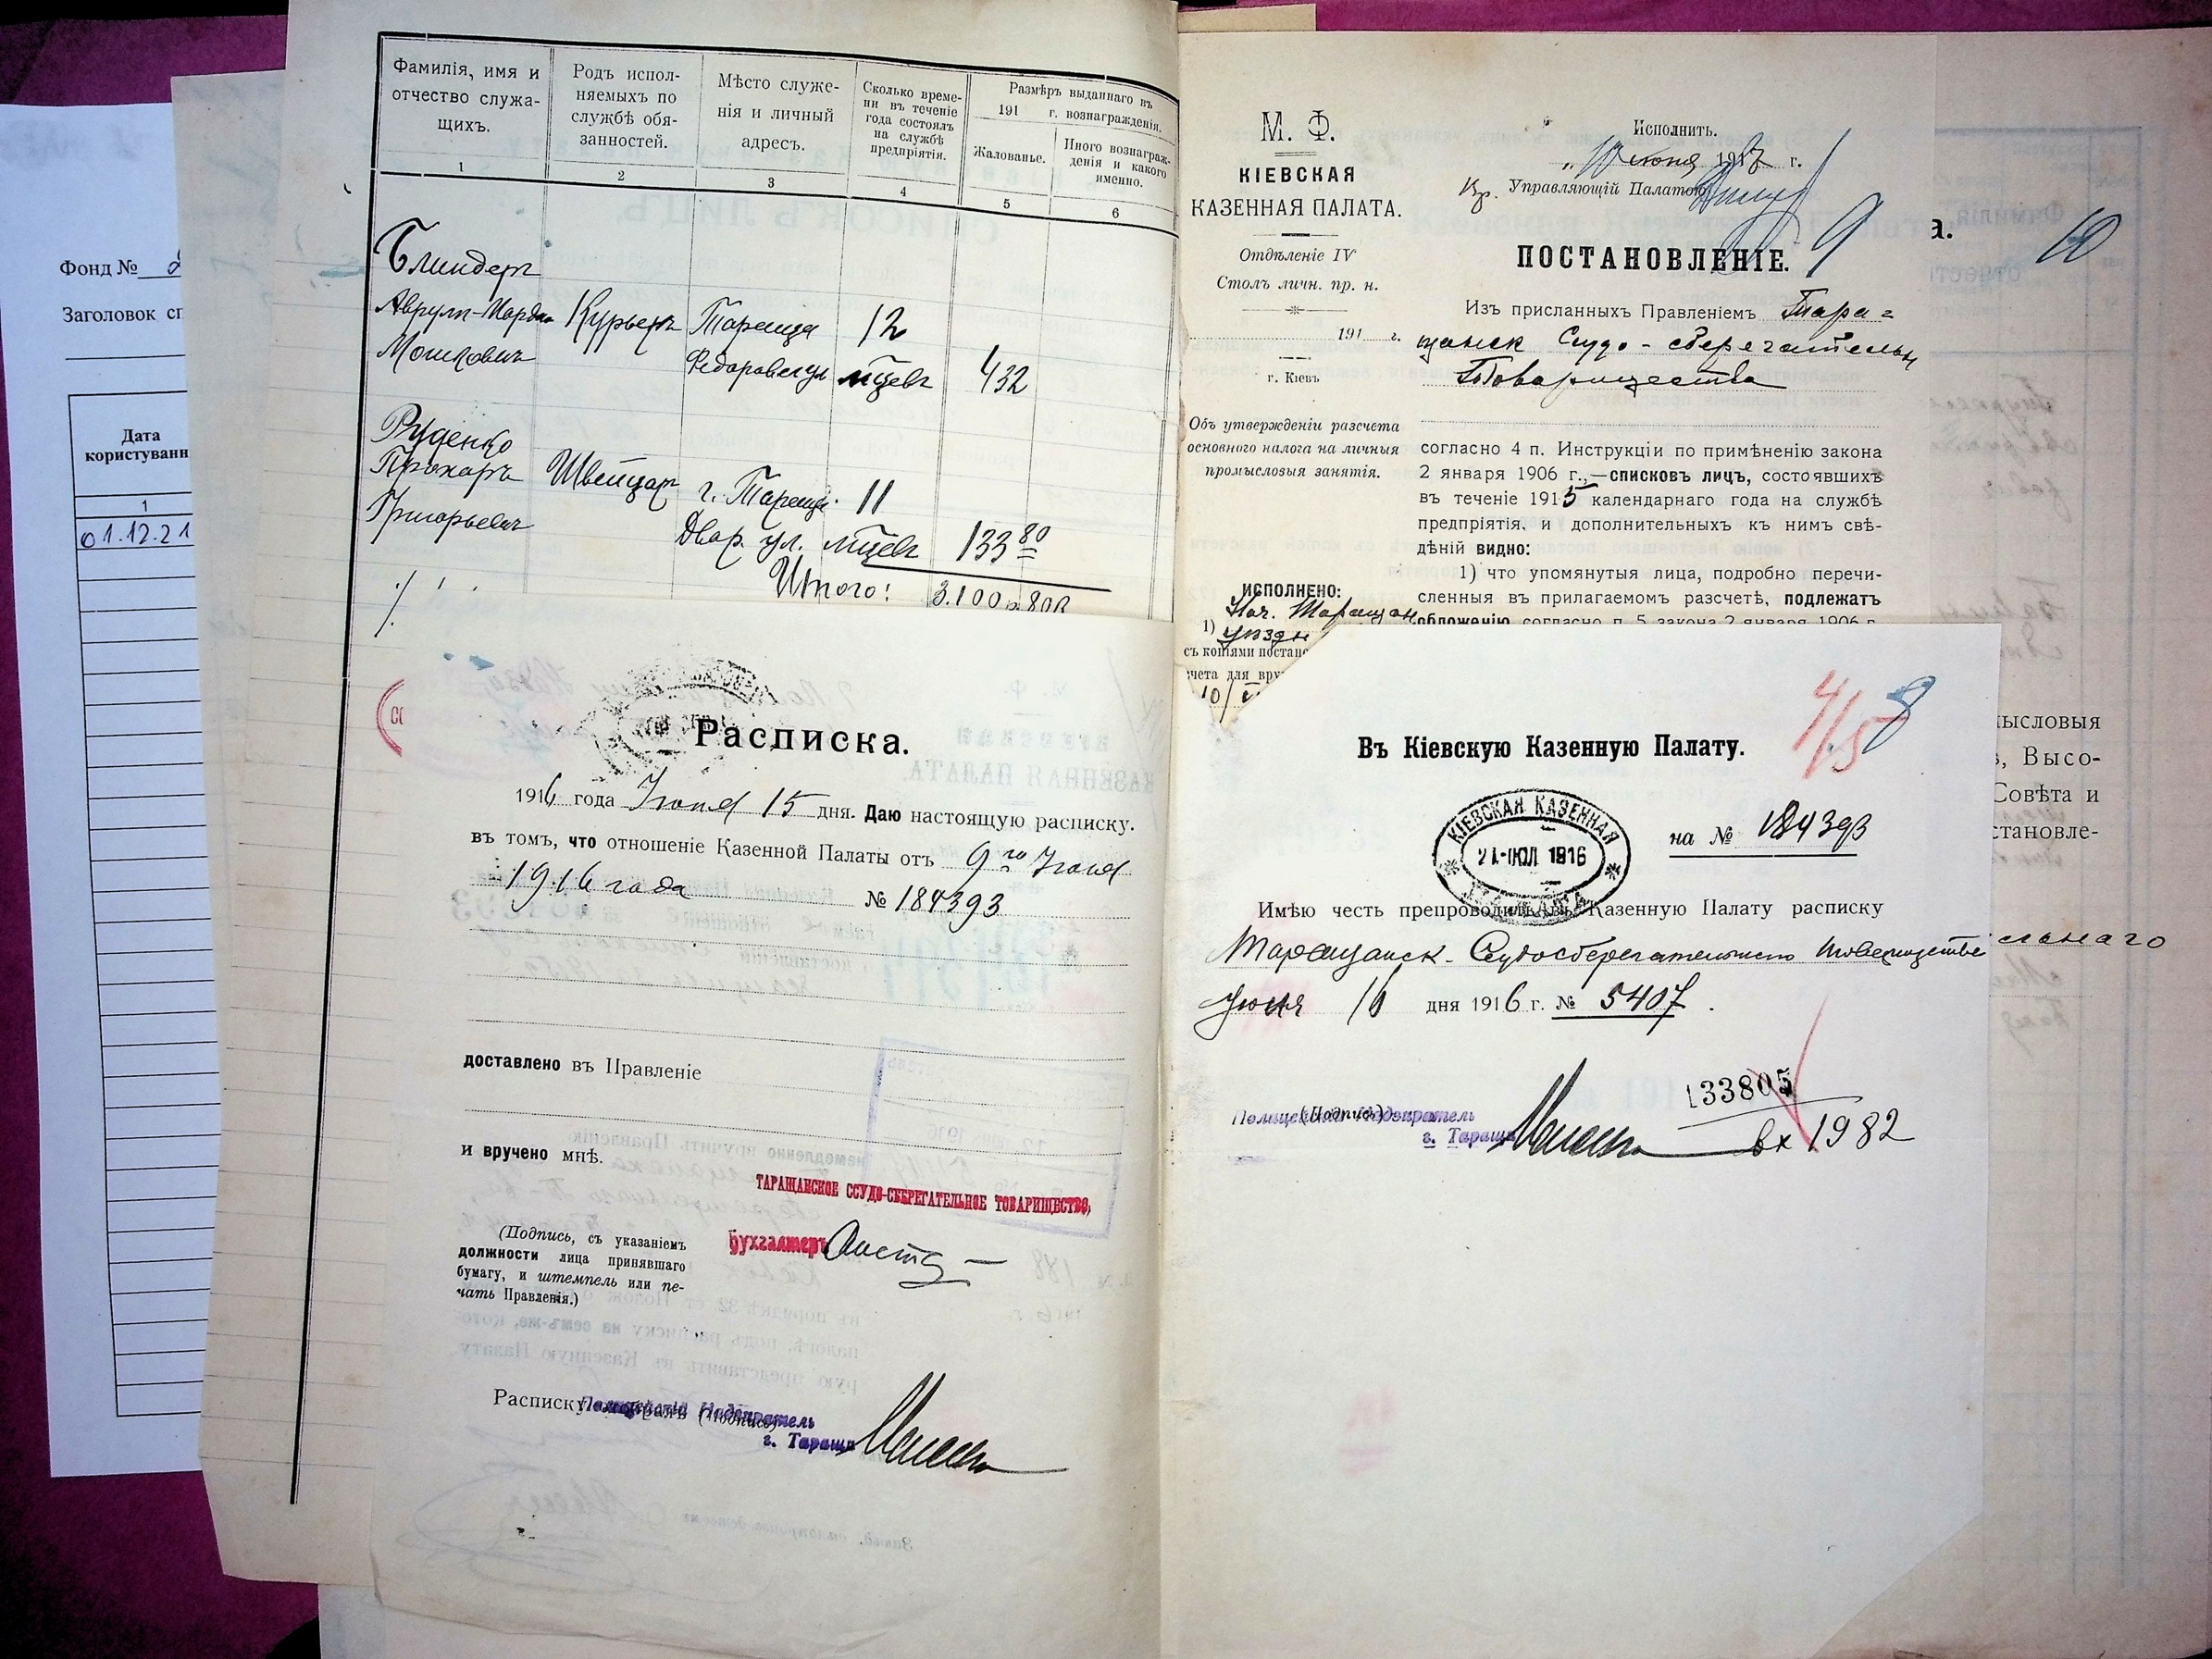 Фонд №
Заголовок сп
Дата
користуванн
1
01.12.21
Фамилія, имя и
отчество служа-
щихъ.
Родъ испол-
няемыхъ по
службѣ обя-
занностей.
Мѣсто служе-
нія и личный
адресъ.
Сколько време-
ни въ теченіе
года состоялъ
на службѣ
предпріятія.
Размѣръ выданнаго въ
191 г. вознагражденія.
Жалованье.
Иного вознаграж-
денія и какого
именно.
1 2 3 4 5 6
Блиндеръ
Аврумъ-Мордко Курьеръ Тараща 12
Мошковичъ мцевъ 432
Руденко
Прохоръ Швейцар г. Тараща 11
Григорьевич Двор. ул. мцевъ 133 80
Итого: 3.100 р. 80 к
Расписка.
1916 года Іюня 15 дня. Даю настоящую расписку.
въ томъ, что отношеніе Казенной Палаты отъ 9го Іюня
1916 года № 184393
доставлено въ Правленіе
и вручено мнѣ.
ТАРАЩАНСКОЕ ССУДО-СБЕРЕГАТЕЛЬНОЕ ТОВАРИЩЕСТВО,
Бухгалтеръ
(Подпись, съ указаніемъ
должности лица принявшаго
бумагу, и штемпель или пе-
чать Правленія.)
Расписку (Подпись)
Полицейскій Надзиратель
г. Таращи
М. Ф.
КІЕВСКАЯ
КАЗЕННАЯ ПАЛАТА.
Отдѣленіе IV
Столъ личн. пр. н.
191 г.
г. Кіевъ
Объ утвержденіи разсчета
основного налога на личныя
промысловыя занятія.
ИСПОЛНЕНО:
Нач. Таращан
1) уѣздн
съ копіями постано
чета для вру
10/
Исполнить.
" 10 іюня 1917 г.
Управляющій Палатою
9
ПОСТАНОВЛЕНІЕ.
Изъ присланныхъ Правленіемъ Тара=
щанск Ссудо-сберегательн
Товарищества
согласно 4 п. Инструкціи по примѣненію закона
2 января 1906 г.,—списковъ лицъ, состоявшихъ
въ теченіе 1915 календарнаго года на службѣ
предпріятія, и дополнительныхъ къ нимъ свѣ-
дѣній видно:
1) что упомянутыя лица, подробно перечи-
сленныя въ прилагаемомъ разсчетѣ, подлежатъ
обложенію согласно п. 5 закона 2 января 1906 г.
а.
10
мысловыя
, Высо-
Совѣта и
становле-
4/15 8
Въ Кіевскую Казенную Палату.
КІЕВСКАЯ КАЗЕННАЯ
21 ІЮЛ 1916
ПАЛАТА
на № 184393
Имѣю честь препроводить въ Казенную Палату расписку
Таращанск. Ссудосберегательнаго товарищества
Іюня 16 дня 1916 г. № 5407.
133805
(Подпись)
Полицейскій Надзиратель
г. Таращи
вх 1982